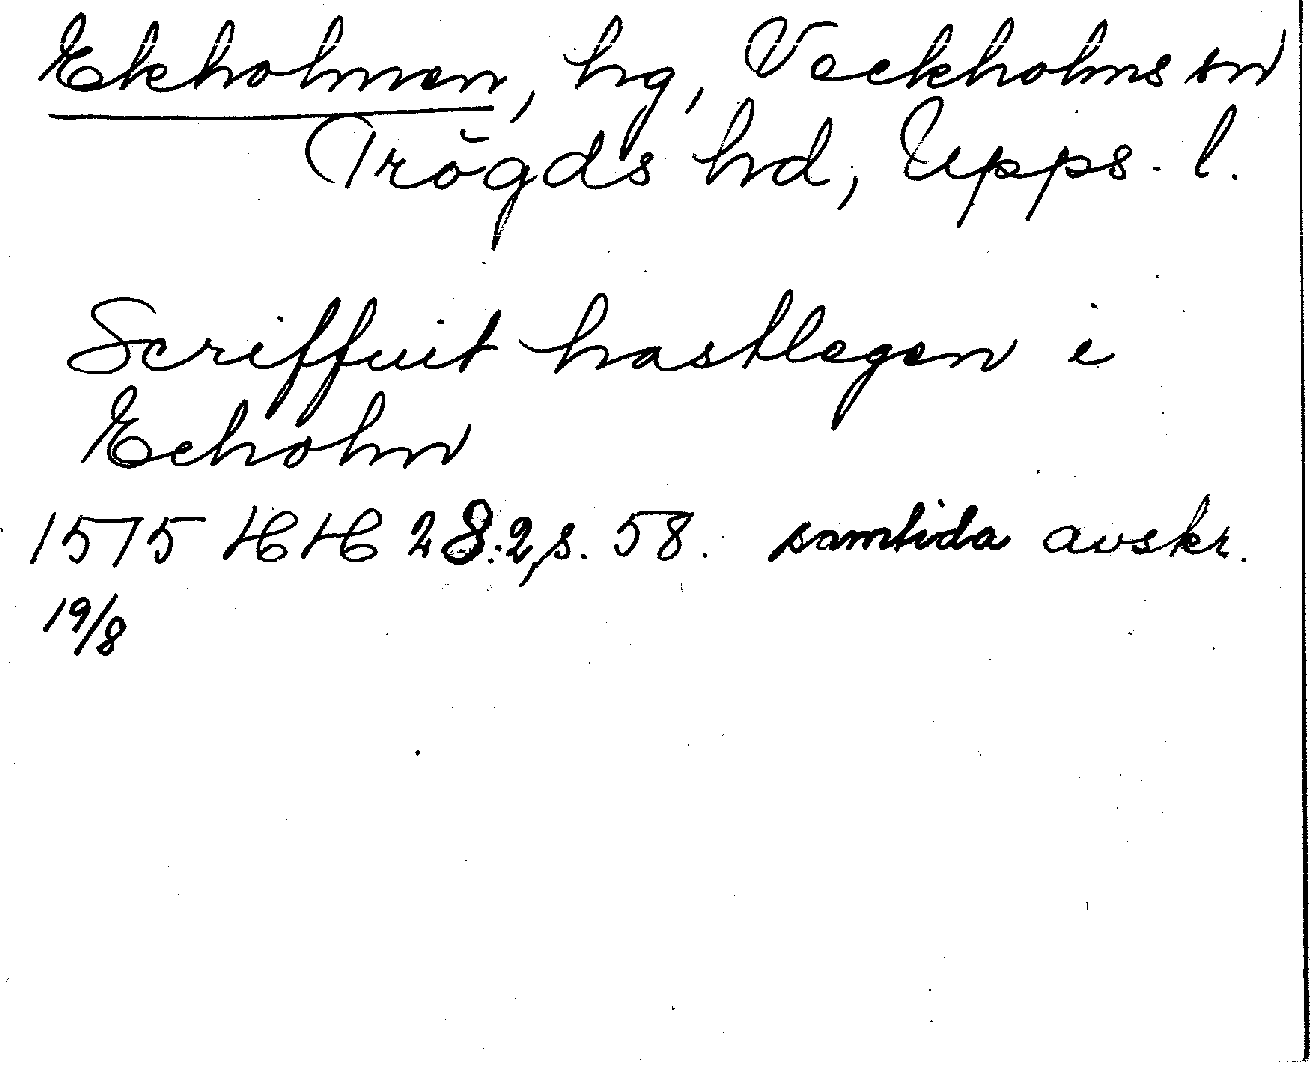 Ekholmen, hg, Veckholms sn
Trögds hd, Upps. l.
Scriffuit hastlegen i
Echolm
1575 HH 28:2, s. 58. samtida avskr.
19/8